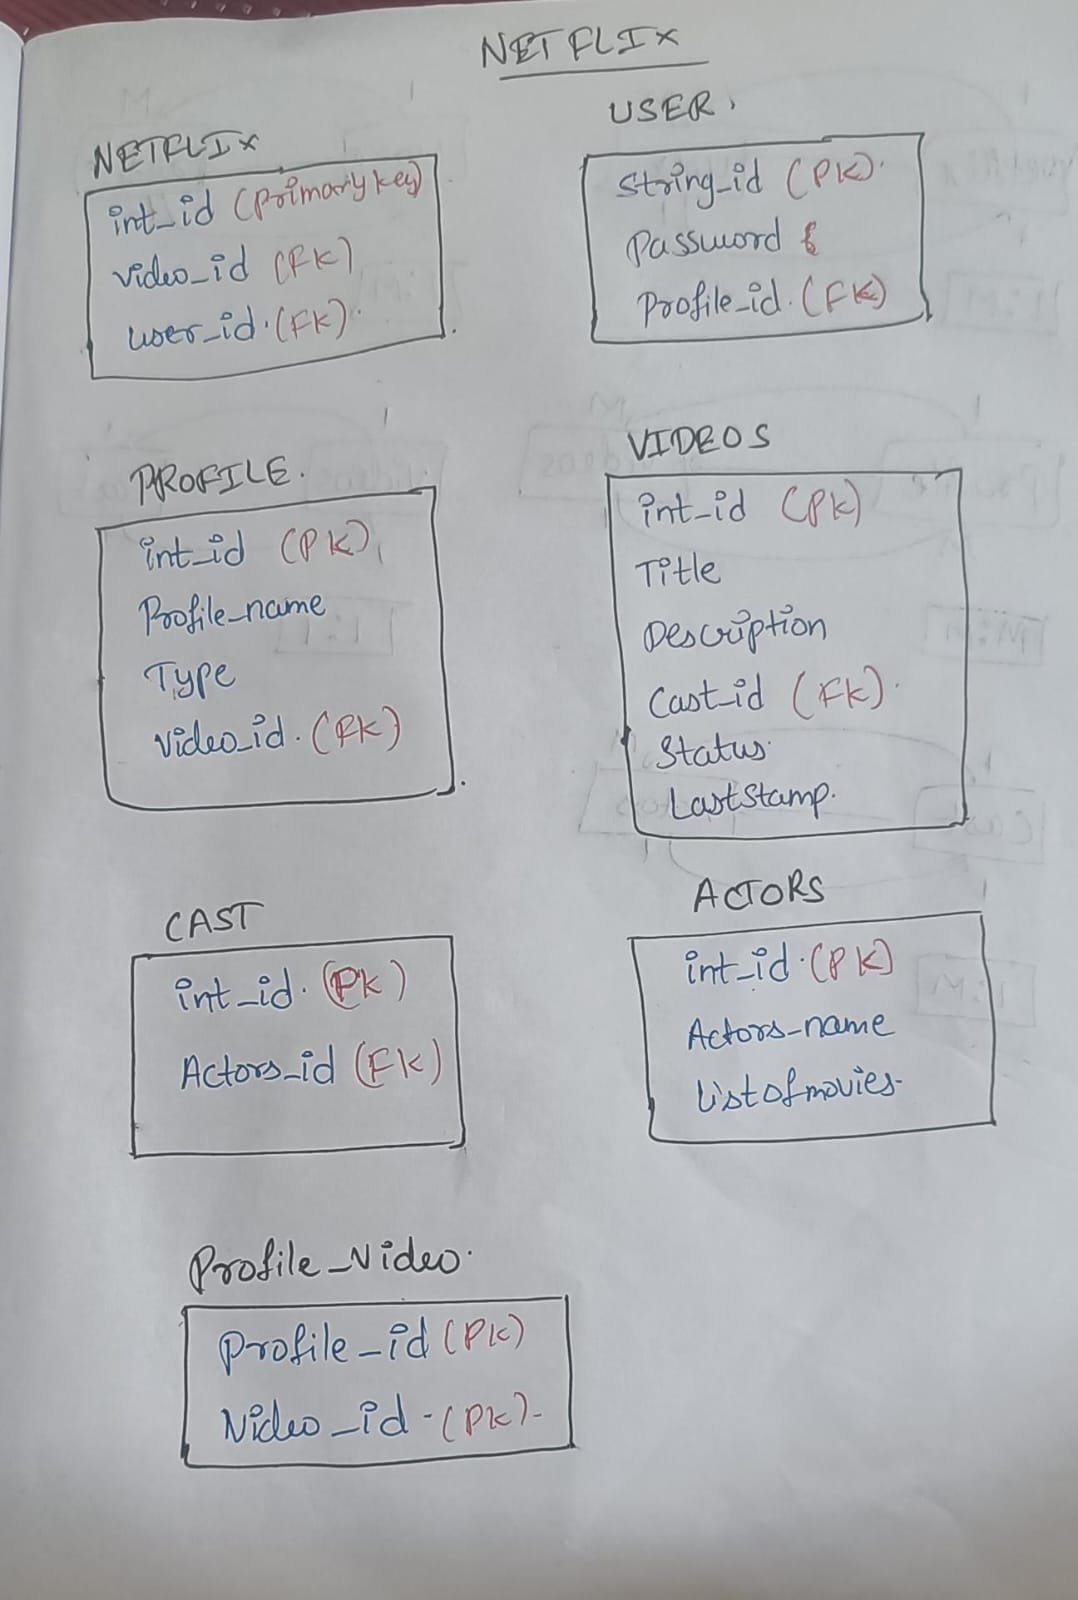 NETFLIX
NETFLIX
int_id (Primary key)
video_id (FK)
user_id. (FK).
USER.
String_id (PK).
Password
Profile_id. (FK)
PROFILE.
int_id (PK)
Profile_name
Type
video_id. (FK)
VIDEOS
int_id (PK)
Title
Description
Cast_id (FK).
Status.
LastStamp.
CAST
int_id. (PK)
Actors_id (FK)
ACTORS
int_id. (PK)
Actors_name
Listofmovies.
Profile_Video.
Profile_id (PK)
Video_id - (PK)-